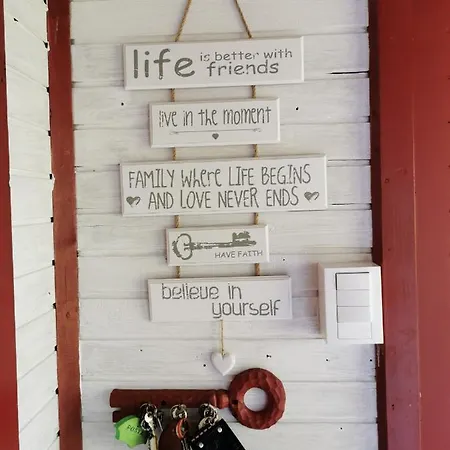 life is better with
friends
live in the moment
FAMILY WHERE LIFE BEGINS
AND LOVE NEVER ENDS
HAVE FAITH
believe in
yourself